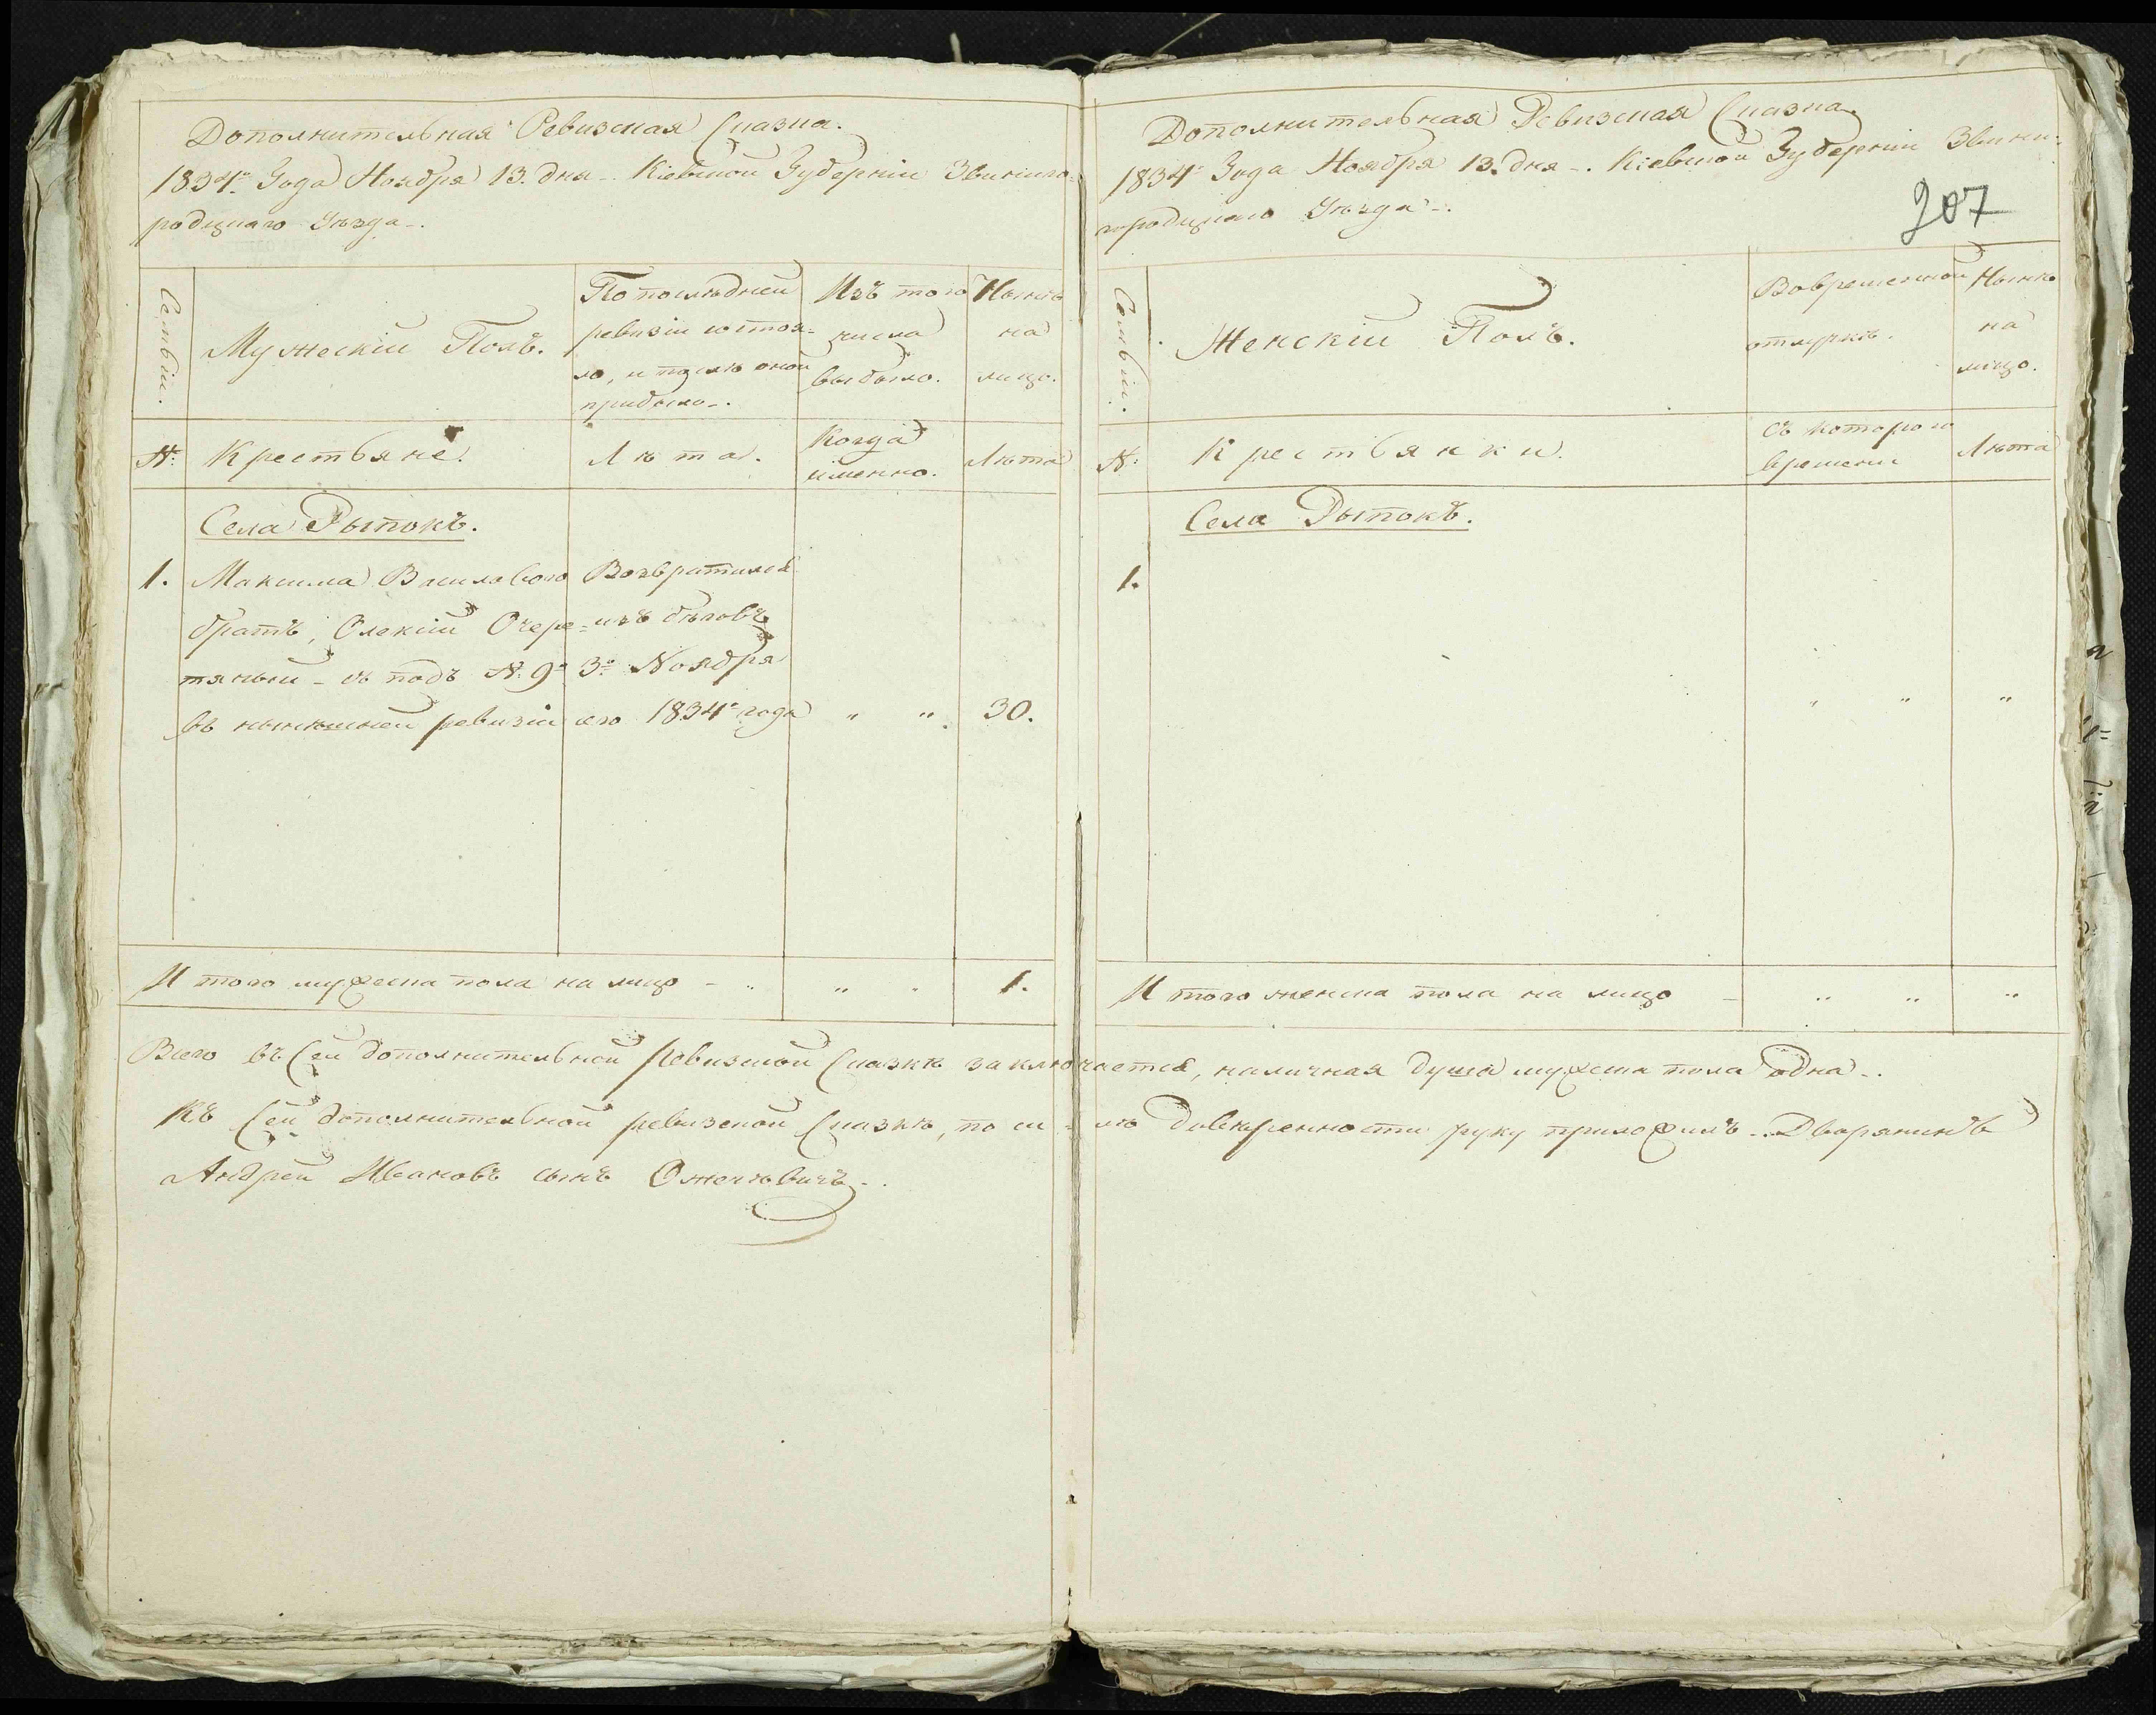 Дополнительная Ревизская Сказка.
1834го Года Ноября 13. дня -. Кіевской Губерніи Звиниго=
родскаго Уѣзда -.
Семьи.
Мужескій Полъ.
По послѣдней
ревизіи состоя=
ло, и послѣ оной
прибыло -.
Изъ того
числа
выбыло.
Нынѣ
на
лицо.
№: Крестьяне.
Лѣта.
Когда
именно.
Лѣта
Села Рыпокъ.
1. Максима Василового Возвратился
братъ, Олексій Очере= изъ бѣговъ
тяный - съ подъ №. 9го 3го Ноября
въ нынѣшней ревизіи сего 1834го года " " 30.
И того мужеска пола на лицо - " " " 1.
Дополнительная Ревизская Сказка.
1834го Года Ноября 13. дня -. Кіевской Губерніи Звини=
городскаго Уѣзда -.
207
Семьи.
Женскій Полъ.
Вовременной
отлучкѣ.
Нынѣ
на
лицо.
№: Крестьянки.
Съ котораго
времени
Лѣта
Села Рыпокъ.
1.
" " "
И того женска пола на лицо - " " "
Всего въ Сей дополнительной Ревизской Сказкѣ заключается, наличная душа мужеска пола одна -.
Къ Сей дополнительной ревизской Сказкѣ, по си= лѣ довѣренности руку приложилъ -. Дворянинъ
Андрей Ивановъ сынъ